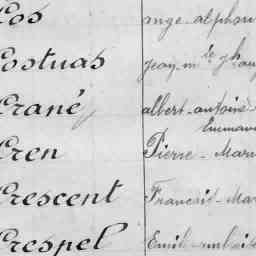 Cos ange alphon
Costuas jean-m
Crané albert-antoine
Emmanu
Cren Pierre-Mari
Crescent Francois-Mar
Crespel Emile